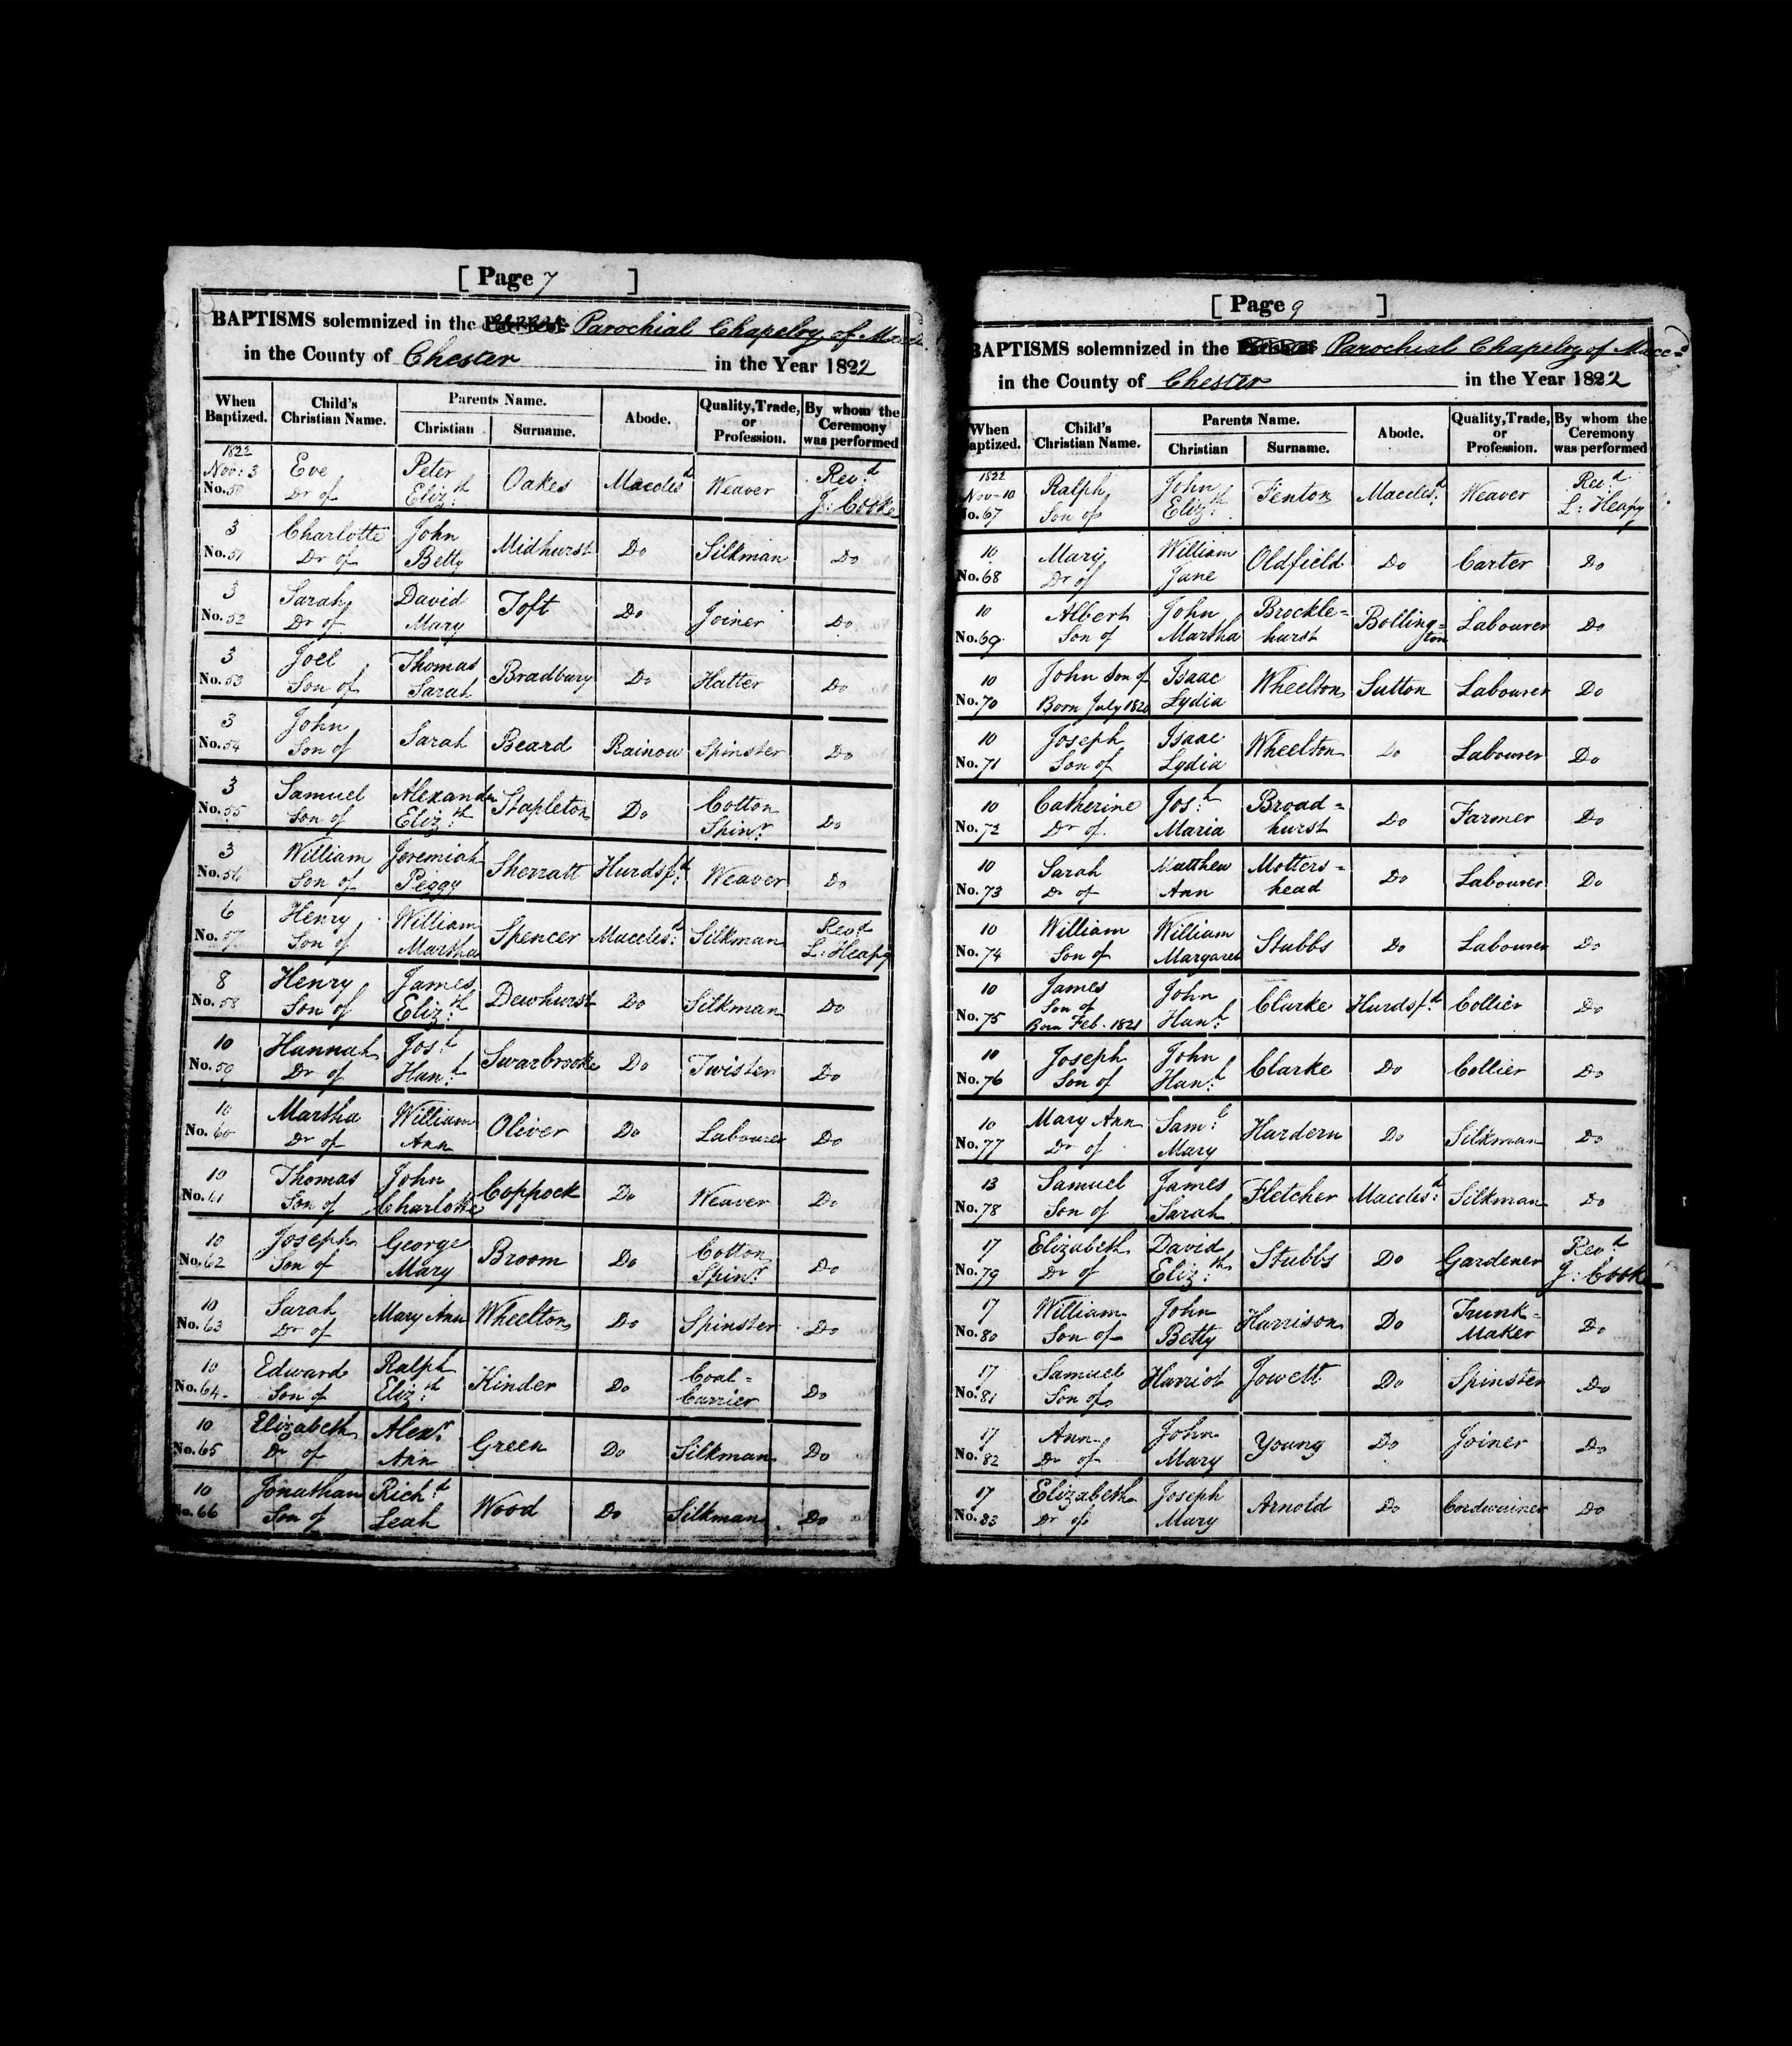 [ Page 7 ]
BAPTISMS solemnized in the Parochial Chapelry of
in the County of Chester in the Year 1822
When Baptized. Child's Christian Name. Parents Name. Christian Surname. Abode. Quality, Trade, or Profession. By whom the Ceremony was performed
1822 Nov: 3 No. 50 Eve Dr of Peter Eliz:th Oakes Maccles:d Weaver Rev:d J: Cooke
3 No. 51 Charlotte Dr of John Betty Midhurst Do Silkman Do
3 No. 52 Sarah Dr of David Mary Toft Do Joiner Do
3 No. 53 Joel Son of Thomas Sarah Bradbury Do Hatter Do
3 No. 54 John Son of Sarah Beard Rainow Spinster Do
3 No. 55 Samuel Son of Alexander Eliz:th Stapleton Do Cotton Spin:r Do
3 No. 56 William Son of Jeremiah Peggy Sherratt Hurdsf:d Weaver Do
6 No. 57 Henry Son of William Martha Spencer Maccles:d Silkman Rev:d L: Heapy
8 No. 58 Henry Son of James Eliz:th Dewhurst Do Silkman Do
10 No. 59 Hannah Dr of Jos:h Han:h Swarbrooke Do Twister Do
10 No. 60 Martha Dr of William Ann Oliver Do Labourer Do
10 No. 61 Thomas Son of John Charlotte Coppock Do Weaver Do
10 No. 62 Joseph Son of George Mary Broom Do Cotton Spin:r Do
10 No. 63 Sarah Dr of Mary Ann Wheelton Do Spinster Do
10 No. 64 Edward Son of Ralph Eliz:th Kinder Do Coal= Carrier Do
10 No. 65 Elizabeth Dr of Alex:r Ann Green Do Silkman Do
10 No. 66 Jonathan Son of Rich:d Leah Wood Do Silkman Do
[ Page 9 ]
BAPTISMS solemnized in the Parochial Chapelry of Macc=
in the County of Chester in the Year 1822
When Baptized. Child's Christian Name. Parents Name. Christian Surname. Abode. Quality, Trade, or Profession. By whom the Ceremony was performed
1822 Nov-10 No. 67 Ralph Son of John Eliz:th Fenton Maccles:d Weaver Rev:d L: Heapy
10 No. 68 Mary Dr of William Jane Oldfield Do Carter Do
10 No. 69 Albert Son of John Martha Brockle= hurst Bolling= ton Labourer Do
10 No. 70 John Son of Born July 1820 Isaac Lydia Wheelton Sutton Labourer Do
10 No. 71 Joseph Son of Isaac Lydia Wheelton Do Labourer Do
10 No. 72 Catherine Dr of Jos:h Maria Broad= hurst Do Farmer Do
10 No. 73 Sarah Dr of Matthew Ann Motters= head Do Labourer Do
10 No. 74 William Son of William Margaret Stubbs Do Labourer Do
10 No. 75 James Son of Born Feb. 1821 John Han:h Clarke Hurdsf:d Collier Do
10 No. 76 Joseph Son of John Han:h Clarke Do Collier Do
10 No. 77 Mary Ann Dr of Sam:l Mary Hardern Do Silkman Do
13 No. 78 Samuel Son of James Sarah Fletcher Maccles:d Silkman Do
17 No. 79 Elizabeth Dr of David Eliz:th Stubbs Do Gardener Rev:d J: Cooke
17 No. 80 William Son of John Betty Harrison Do Trunk= Maker Do
17 No. 81 Samuel Son of Harriot Jowett Do Spinster Do
17 No. 82 Ann Dr of John Mary Young Do Joiner Do
17 No. 83 Elizabeth Dr of Joseph Mary Arnold Do Cordwainer Do